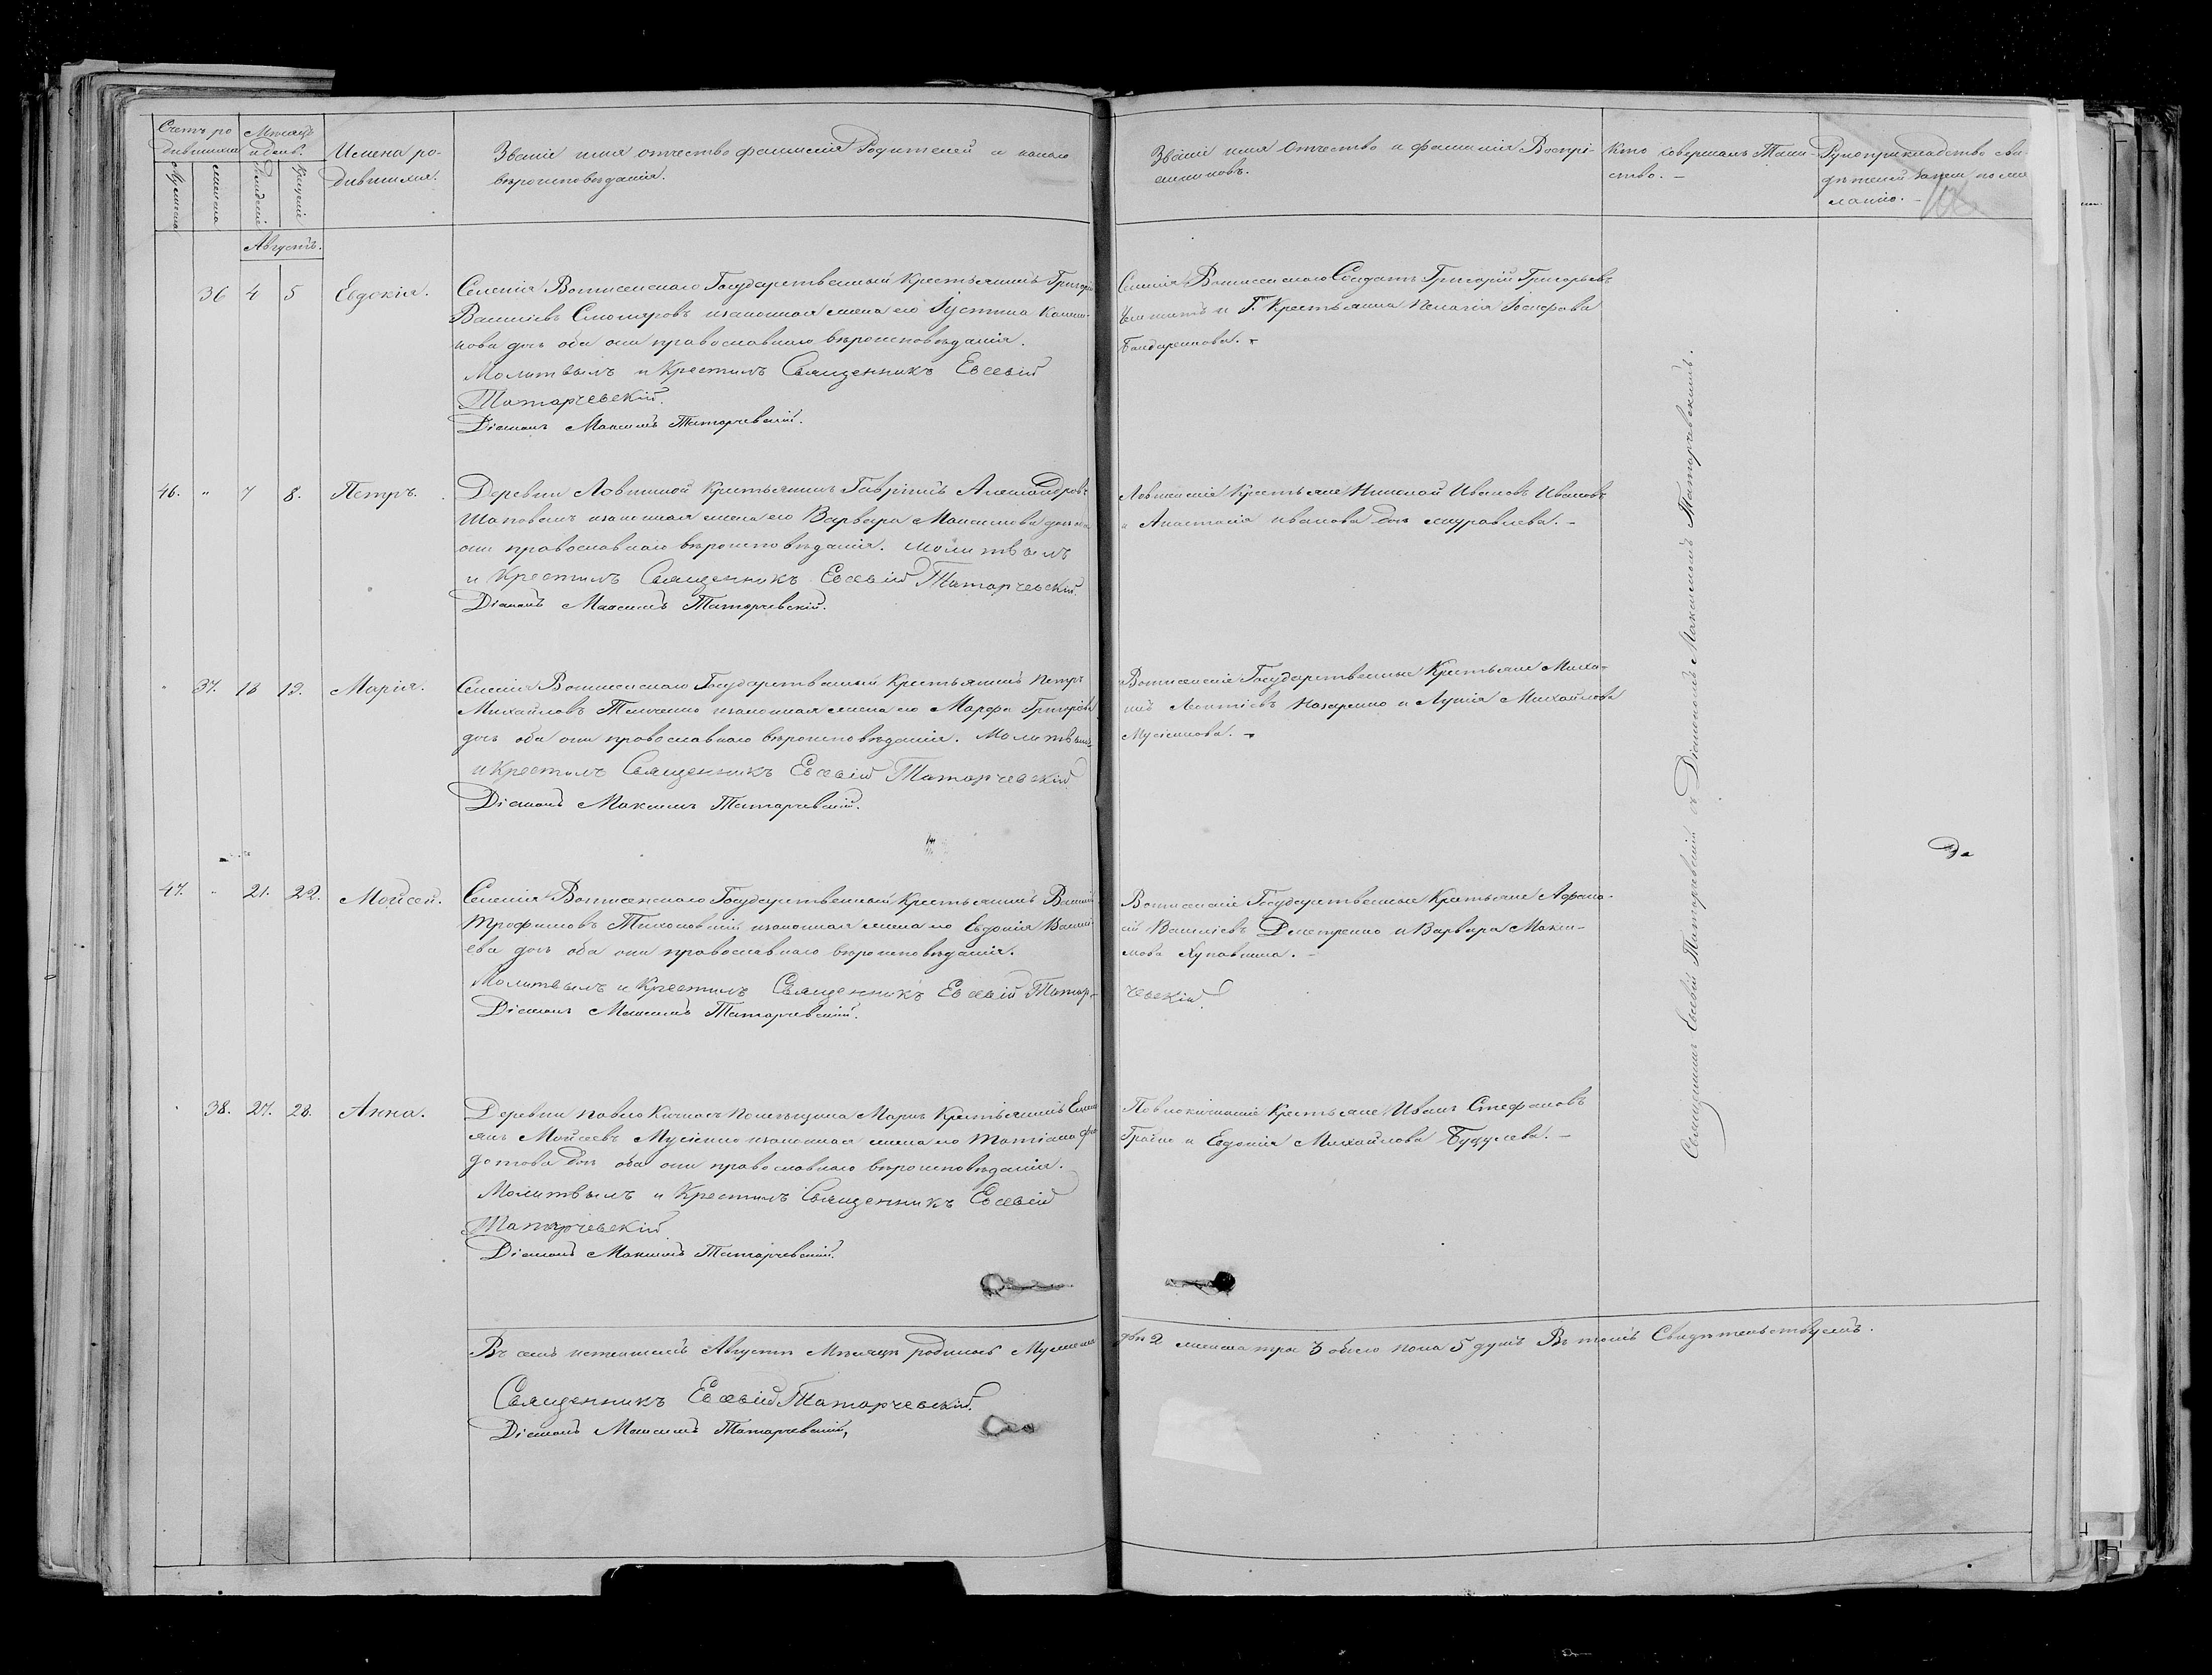 Счетъ ро
дившихся
Мужеска
женска
Мѣсяцъ
и день.
Рожденіе
Крещеніе
Имена ро-
дившихся.
Званіе имя отчество фамилія Родителей и какого
вѣроисповѣданія.
Званіе имя Отчество и фамилія Воспрі-
емниковъ.
Кто совершалъ Таин-
ство. –
Рукоприкладство сви-
дѣтелей записи по же
ланію. –
Августъ.
36 4 5 Евдокія.
Селенія Государственный Крестьянинъ Григорій
Василіевъ Столяровъ и законная жена его Іустина
нова дочь оба они православнаго вѣроисповѣданія.
Молитвилъ и Крестилъ Священникъ Евсевій
Татарчевскій.
Діаконъ Максимъ Татарчевскій.
Селенія Солдатъ Григорій Григорьевъ
и Г. Крестьянка Пелагія Іосифова
Бондаренкова.
46. „ 7 8. Петръ.
Деревни Крестьянинъ Гавріилъ Александровъ
Шаповалъ и законная жена его Варвара Максимова дочь
они православнаго вѣроисповѣданія. Молитвилъ
и Крестилъ Священникъ Евсевій Татарчевскій.
Діаконъ Максимъ Татарчевскій.
Крестьяне Николай Ивановъ Ивановъ
и Анастасія Иванова дочь Журавлева. –
„ 37. 18 19. Марія.
Селенія Государственный Крестьянинъ Петръ
Михайловъ и законная жена его Марфа Григоріева
дочь оба они православнаго вѣроисповѣданія. Молитвилъ
и Крестилъ Священникъ Евсевій Татарчевскій
Діаконъ Максимъ Татарчевскій.
Государственные Крестьяне Миха-
илъ Леонтіевъ Назаренко и Михайлова
47. „ 21. 22. Мойсей.
Селенія Государственный Крестьянинъ Василій
Трофимовъ и законная жена его Евдокія Василі
ева дочь оба они православнаго вѣроисповѣданія.
Молитвилъ и Крестилъ Священникъ Евсевій Татар-
чевскій.
Діаконъ Максимъ Татарчевскій.
Государственные Крестьяне Афана-
сій Василіевъ и Варвара Макси-
мова
Да
38. 27. 28. Анна.
Деревни Павло Кичкасъ помѣщика Крестьянинъ
Мойсеевъ Мусіенко и законная жена его Татіана Фе
дотова дочь оба они православнаго вѣроисповѣданія.
Молитвилъ и Крестилъ Священникъ Евсевій
Татарчевскій.
Діаконъ Максимъ Татарчевскій.
Павлокичкаскіе Крестьяне Иванъ Стефановъ
и Евдокія Михайлова –
Священникъ Евсевій Татарчевскій съ Діакономъ Максимомъ Татарчевскимъ.
Въ семъ истекшемъ Августѣ Мѣсяцѣ родилось Мужеска два 2 женска три 3 обоего пола 5 душъ Въ томъ Свидѣтельствуемъ.
Священникъ Евсевій Татарчевскій.
Діаконъ Максимъ Татарчевскій,